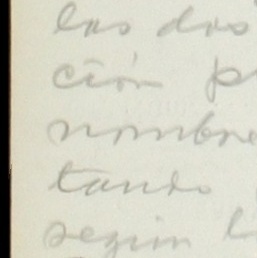 las dos
ción p
nombre
tando
según l